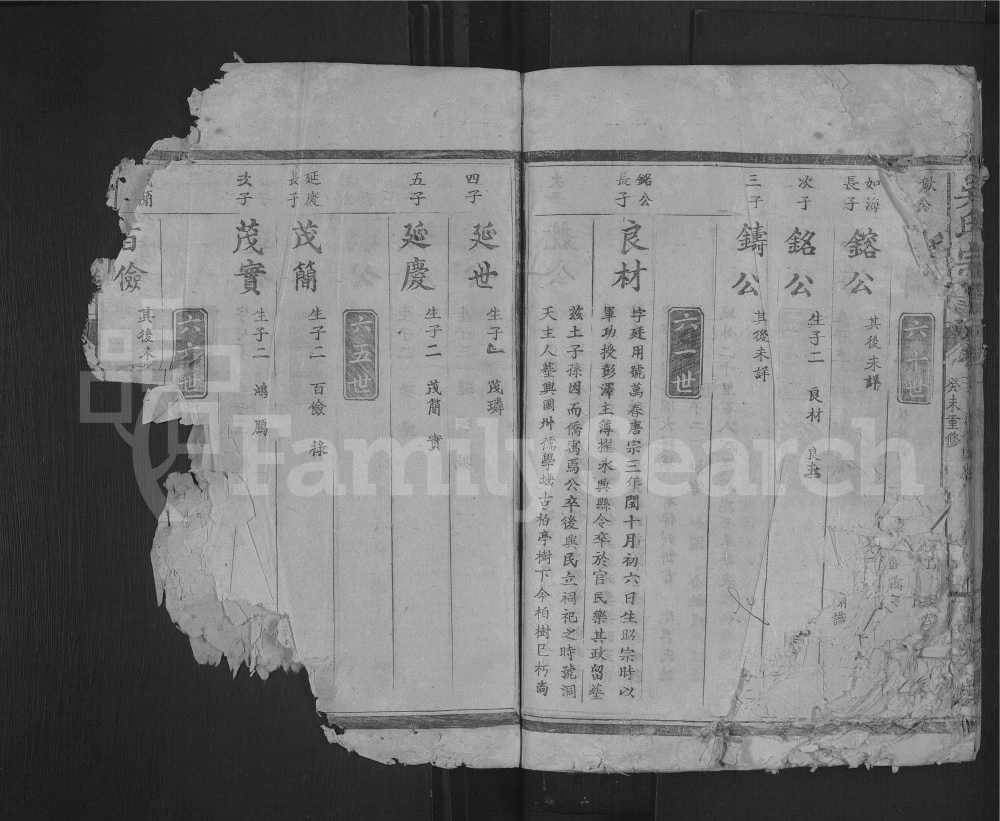 癸未重修
六十世
如海
長子
鎔公
其後未詳
次子
銘公
生子二 良材 良
三子
鑄公
其後未詳
六一世
銘公
長子
良材
字廷用號萬春唐宗三年閏十月初六日生昭宗時以
軍功授彭澤主簿擢永興縣令卒於官民樂其政留塟
茲土子孫因而僑寓焉公卒後與民立祠祀之時號洞
天主人塟興國州儒學 古柏亭樹下今柏樹已朽尚
四子
延世
生子 茂璘
五子
延慶
生子二 茂簡 實
六五世
延慶
長子
茂簡
生子二 百儉 祿
次子
茂實
生子二 鴻 鴈
六六世
簡
百儉
其後未
FamilySearch